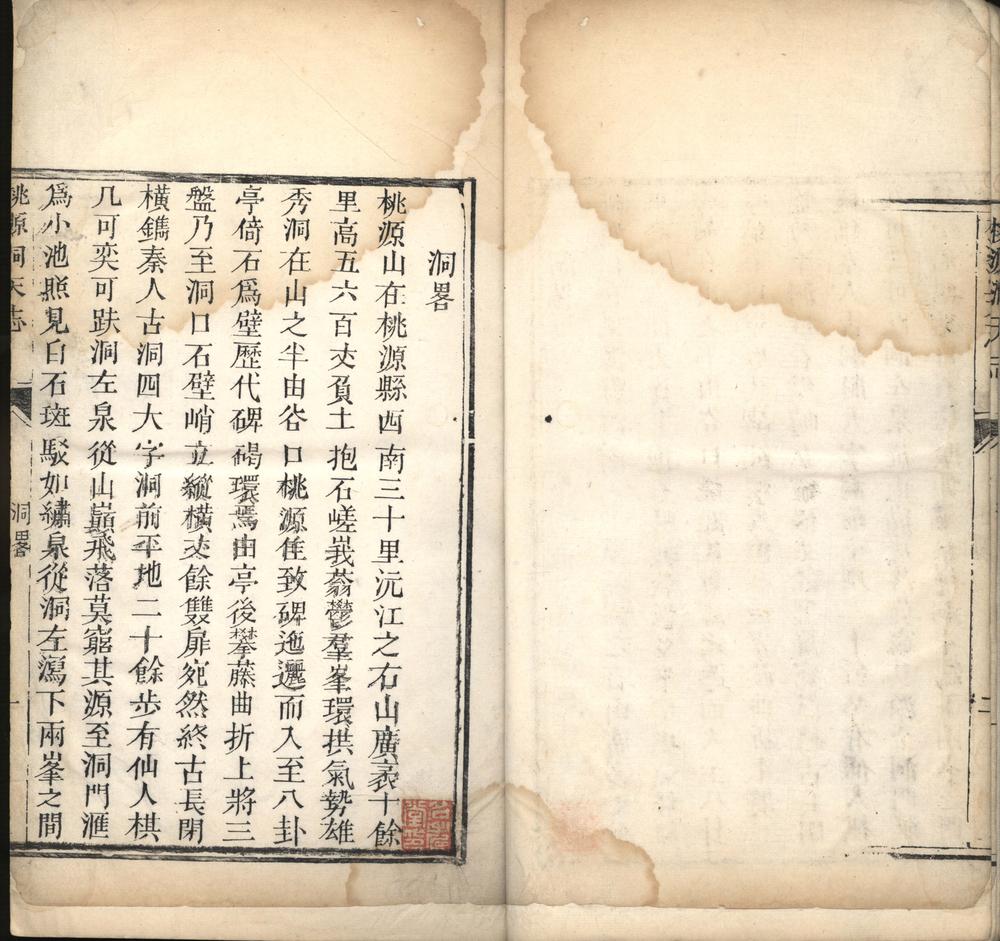 洞畧
桃源山在桃源縣西南三十里沅江之右山廣袤十餘
里高五六百丈負土抱石嵯峩蓊鬱羣峯環拱氣勢雄
秀洞在山之半由谷口桃源佳致碑迤邐而入至八卦
亭倚石爲壁歷代碑碣環焉由亭後攀藤曲折上將三
盤乃至洞口石壁峭立縱橫丈餘雙扉宛然終古長閉
橫鐫秦人古洞四大字洞前平地二十餘步有仙人棋
几可奕可趺洞左泉從山巔飛落莫窮其源至洞門滙
爲小池照見白石斑駁如繡泉從洞左瀉下兩峯之間
桃源洞天志
洞畧
一
桃源洞天志
二